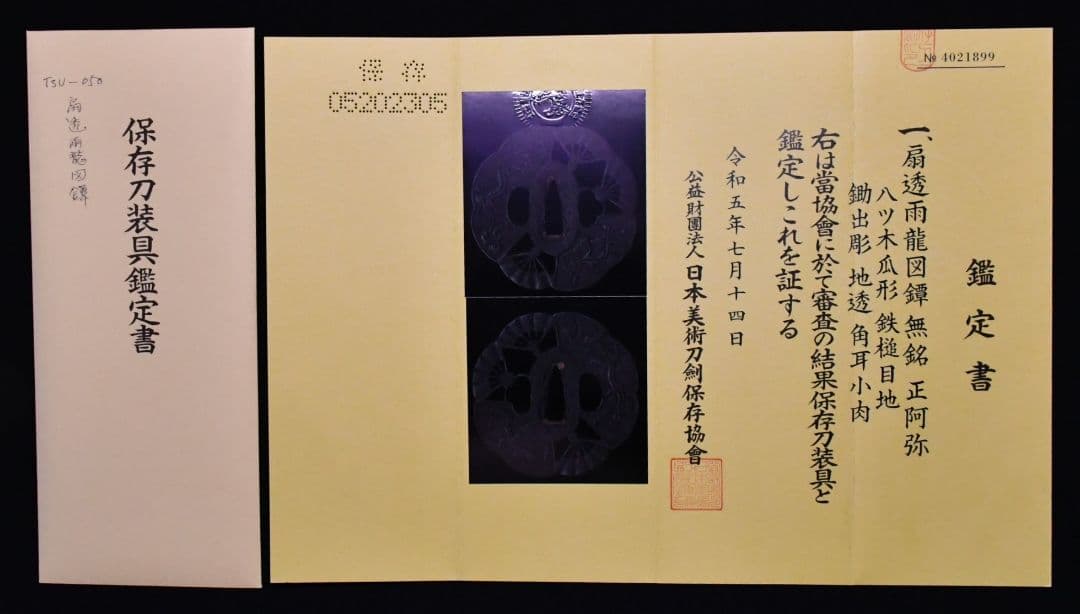 TSU-050
扇透雨龍図鐔
保存刀装具鑑定書
保存
05202305
№ 4021899
鑑定書
一、扇透雨龍図鐔 無銘 正阿弥
八ツ木瓜形 鉄槌目地
鋤出彫 地透 角耳小肉
右は當協會に於て審査の結果保存刀装具と
鑑定しこれを証する
令和五年七月十四日
公益財團法人 日本美術刀劍保存協會